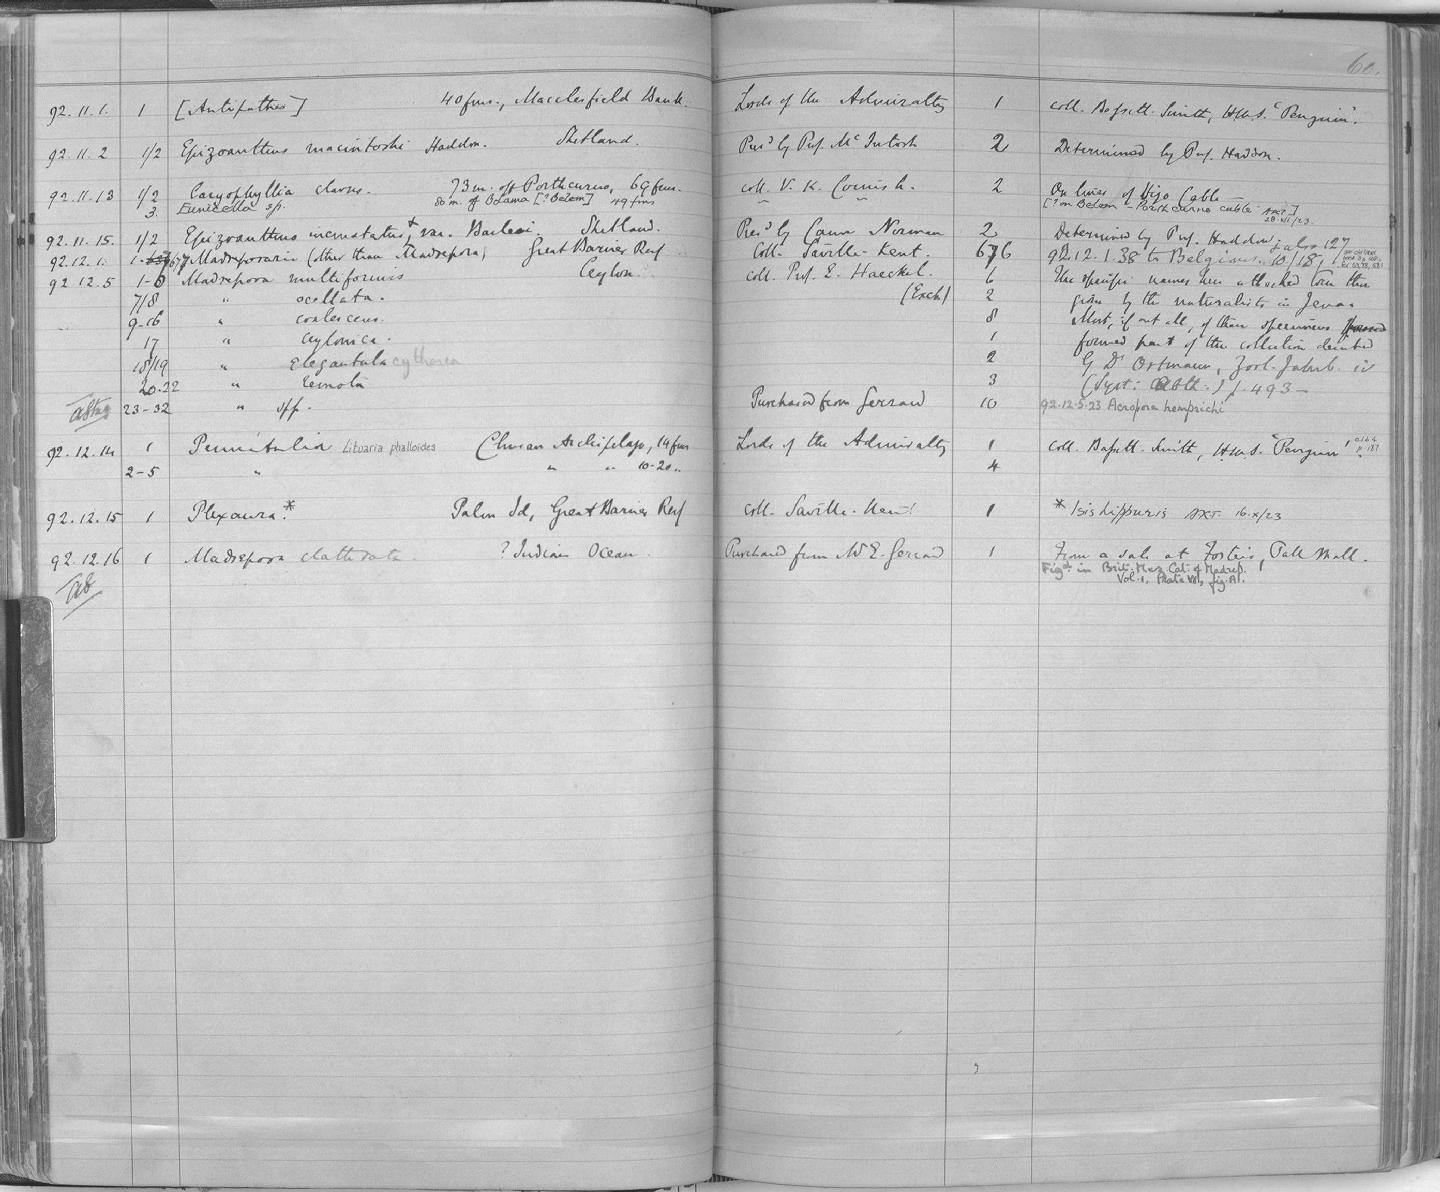 60.
92.11.1. 1 [Antipathes] 40 fms., Macclesfield Bank. Lords of the Admiralty 1 coll. Bassett-Smith, H.M.S. "Penguin".
92.11.2 1/2 Epizoanthus macintoshi Haddon. Shetland. Presd by Prof. McIntosh 2 Determined by Prof. Haddon.
92.11.13 1/2 Caryophyllia clavus. 73 m. off Porthcurno, 69 fms. coll. V. K. Cornish. 2 On lines of Vigo Cable
3. Eunicella sp. 80 m. of Bolama [? Belem] 49 fms " " [? on Belem - Porthcurno cable AKT]
28.VI/23.
92.11.15. 1/2 Epizoanthus incrustatus, var. Barleei. Shetland. Presd by Canon Norman 2 Determined by Prof. Haddon
92.12.1. 1- 677 Madreporaria (other than Madrepora) Great Barrier Reef Coll. Saville-Kent. 676 92.12.1.38 to Belgium. 10/18
+ also 127
92.12.5 1-6 Madrepora multiformis Ceylon. coll. Prof. E. Haeckel. 6 The specific names here attached to
7/8 " ocellata. (Exch) 2 given by the naturalists in Jena.
9-16 " coalescens. 8 Most, if not all, of these specimens
17 " ceylonica. 1 formed part of the collection described
18/19 " elegantula cytherea 2 by Dr Ortmann, Zool. Jahrb. iv
20-22 " remota 3 (Syst: Abth.) p. 493-
23-32 " spp. Purchased from Gerrard 10 92.12.5.23 Acropora hemprichi
92.12.14 1 Pennatulid Lituaria phalloides Chusan Archipelago, 19 fms Lords of the Admiralty 1 coll. Bassett-Smith, H.M.S. "Penguin"
2-5 " " " 10-20 " 4
92.12.15 1 Plexaura.* Palm Id, Great Barrier Reef coll. Saville-Kent 1 * Isis hippuris AKT. 16.x/23
92.12.16 1 Madrepora clathrata ? Indian Ocean. Purchased from Mr E. Gerrard 1 From a sale at Foster's, Pall Mall.
Figd in Brit. Mus. Cat. of Madrep.
Vol. 1, Plate VII, fig. A.